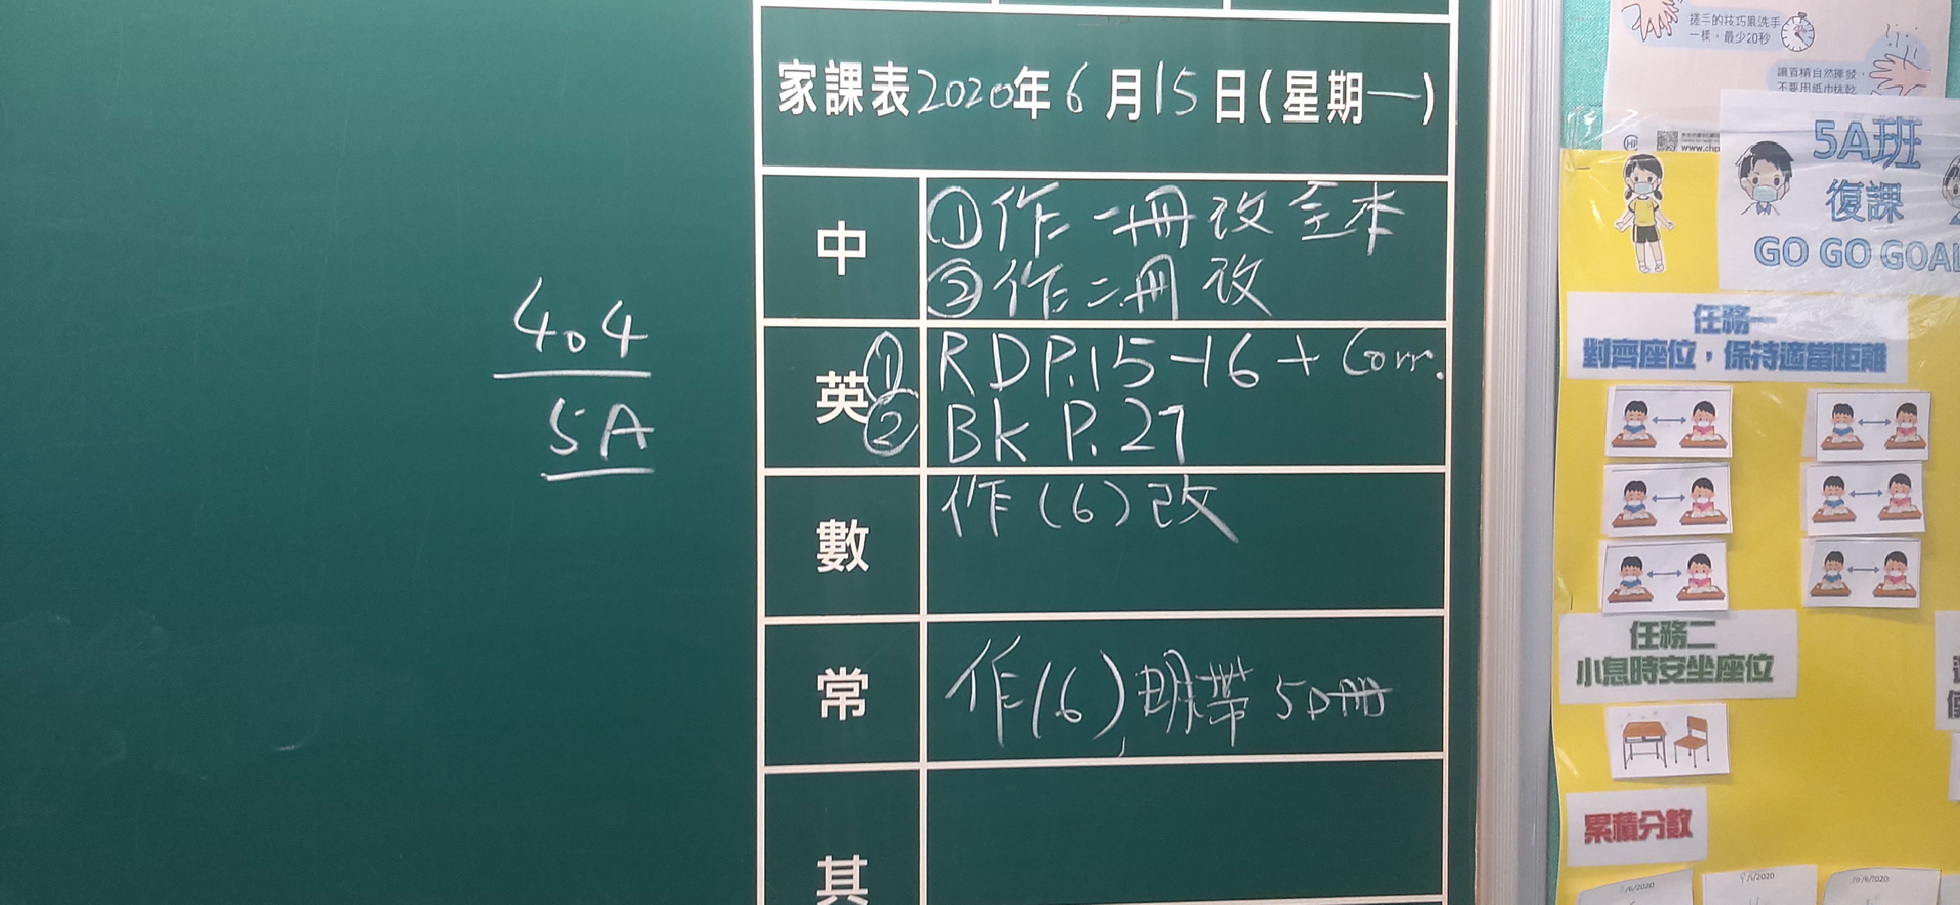 404
5A
家課表2020年6月15日(星期一)
中
①作一冊改全本
②作二冊改
英
①RD P.15-16 + Corr.
②BK P.27
數
作(6)改
常
作(6),明帶5D冊
其
搓手的技巧跟洗手
一樣，最少20秒
讓酒精自然揮發，
不要用紙巾抹乾
5A班
復課
GO GO GOAL
任務一
對齊座位，保持適當距離
任務二
小息時安坐座位
累積分數
9/6/2020
10/6/2020